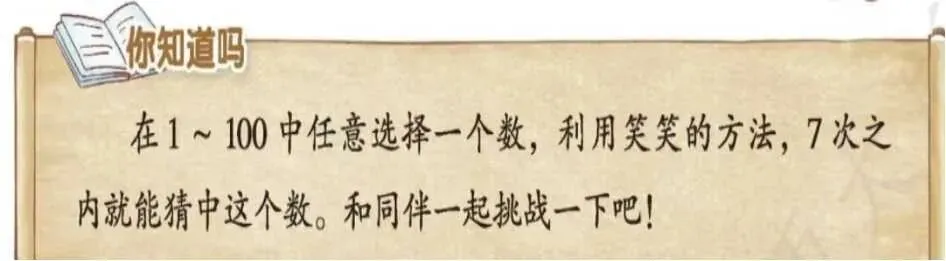 你知道吗
在1~100中任意选择一个数，利用笑笑的方法，7次之
内就能猜中这个数。和同伴一起挑战一下吧！